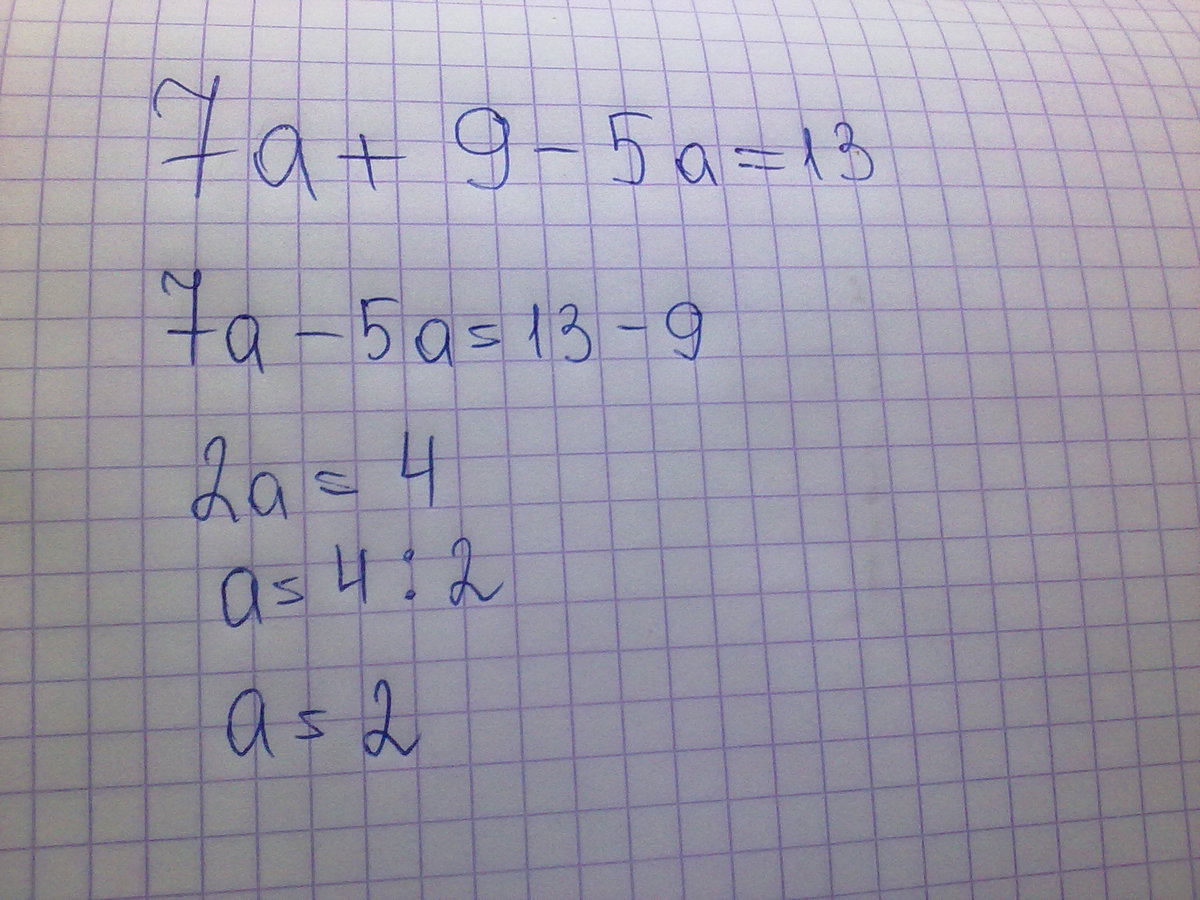 7a + 9 - 5a = 13
7a - 5a = 13 - 9
2a = 4
a = 4 : 2
a = 2